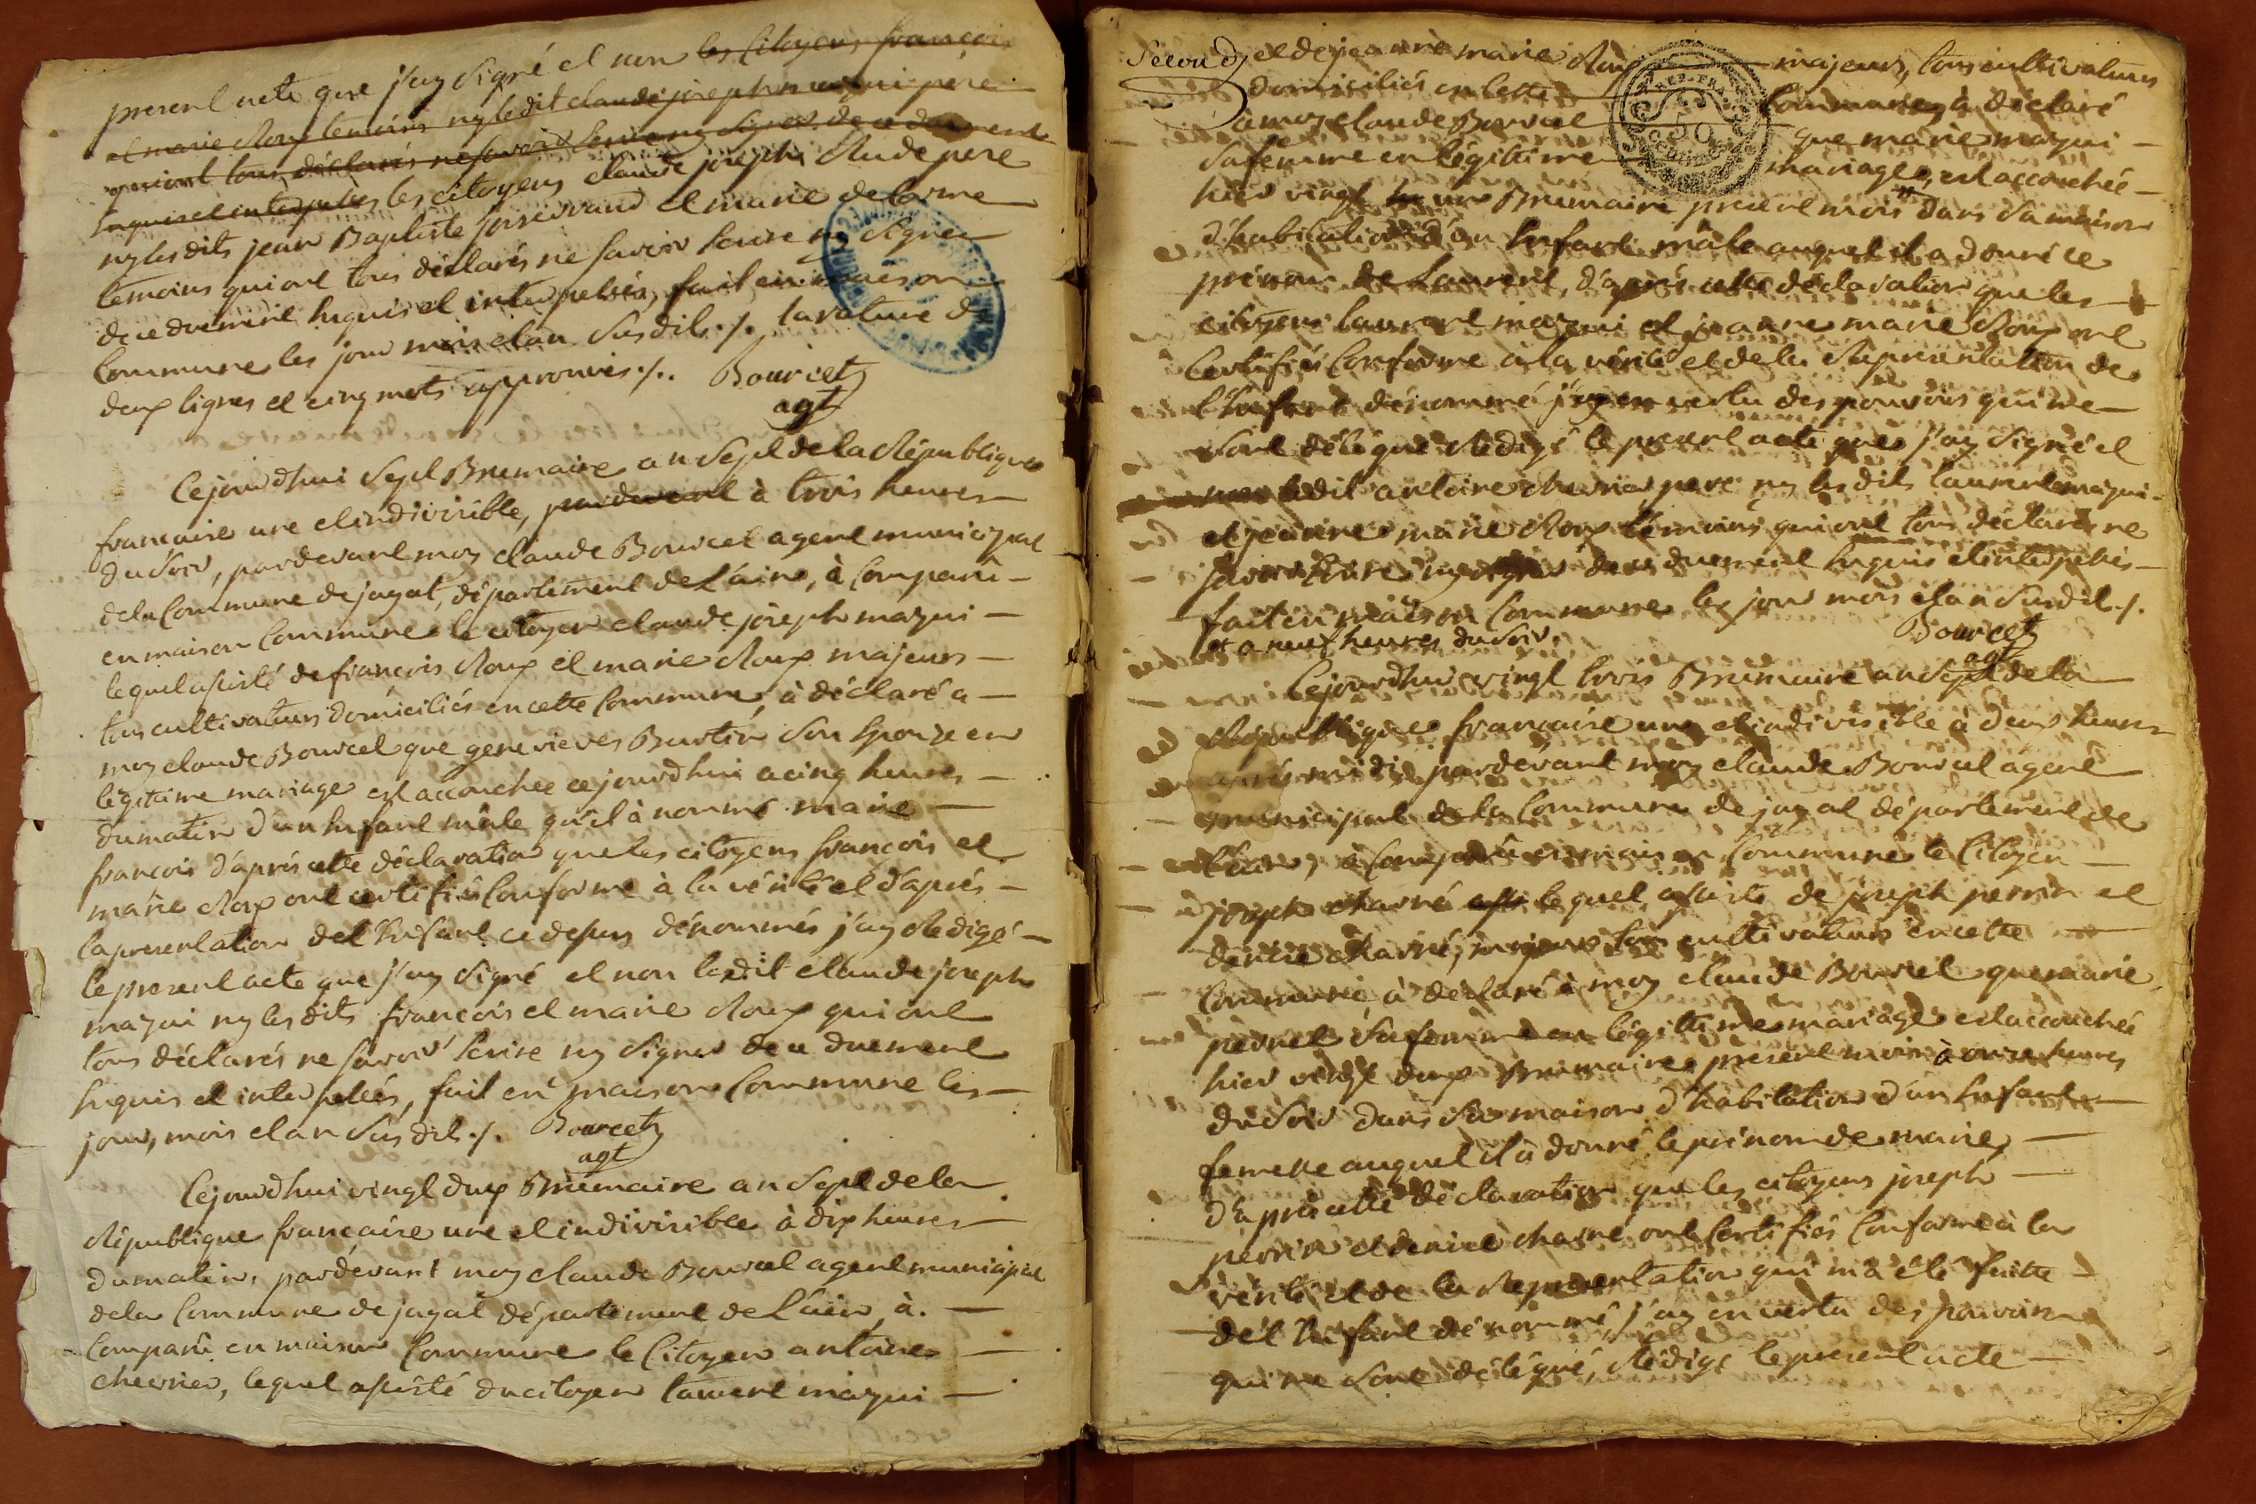 present acte que j'ay signé et non les Citoyens françois
et marie Roux temoins ny ledit claude joseph mazui père
qui ont tous déclarés ne savoir Ecrire ny signer de ce duement
Enquis et interpellés, les citoyens claude joseph Rude pere
ny lesdits jean Baptiste et marie delorme
temoins qui ont tous déclarés ne savoir Ecrire ny signer
de ce duement Enquis et interpellés, fait en maison
Commune les jour mois et an susdits ./. la rature de
deux lignes et cinq mots approuvés ./. Bourcet
agt
Cejourd'hui sept Brumaire an sept de la République
francaise une et indivisible, pardevant à trois heures
du soir, pardevant moy claude Bourcet agent municipal
de la Commune de jayat, département de L'ain, à Comparû
en maison Commune le citoyen claude joseph mazui
lequel assisté de françois Roux et marie Roux majeurs
tous cultivateurs domiciliés en cette Commune, à déclaré a
moy claude Bourcet que genevieve Burtin son Epouze en
légitime mariage est accouchée cejourd'hui a cinq heures
du matin d'un Enfant mâle qu'il à nommé marie
françois d'après cette déclaration que les citoyens françois et
marie Roux ont certifiés Conforme à la vérité et d'après
la presentation de l'Enfant ce dessus dénommés j'ay Redigé
le present acte que j'ay signé et non ledit claude joseph
mazui ny lesdits françois et marie Roux qui ont
tous déclarés ne savoir Ecrire ny signer de ce duement
Enquis et interpellés, fait en maison Commune les
jour, mois et an susdits ./. Bourcet
agt
Cejourd'hui vingt deux Brumaire an sept de la
République francaise une et indivisible à dix heures
du matin, pardevant moy claude Bourcet agent municipal
de la Commune de jayat département de L'ain, à
Comparû en maison Commune le Citoyen antoine
chevrier, lequel assisté du citoyen laurent mazui
Second et de jeanne marie Roux majeurs, tous cultivateurs
domiciliés en cette Commune, à déclaré
à moy claude Bourcet que marie mazui
sa femme en légitime mariage, est accouchée
hier vingt un Brumaire present mois dans sa maison
d'habitation d'un Enfant mâle auquel il a donné le
prénom de Laurent, d'après cette déclaration que les
citoyens laurent mazui et jeanne marie Roux ont
Certifiés Conforme à la vérité et de la Representation de
l'Enfant dénommé j'ay en vertu des pouvoirs qui me
sont délégué Redigé le present acte que j'ay signé et
non ledit antoine chevrier pere ny lesdits laurent mazui
et jeanne marie Roux témoins qui ont tous déclarés ne
savoir Ecrire ny signer de ce duement Enquis et interpellés
fait en maison Commune les jour mois et an susdits ./.
et a neuf heures du soir. Bourcet
agt
Cejourd'hui vingt trois Brumaire an sept de la
Republique francaise une et indivisible à deux heures
après midi, pardevant moy claude Bourcet agent
municipal de la Commune de jayat département de
L'ain, à Comparû en maison Commune le Citoyen
joseph charné lequel assisté de joseph perrin et
denise charné, majeurs tous cultivateurs en cette
Commune à declaré à moy claude Bourcet que marie
pernet sa femme en légitime mariage est accouchée
hier vingt deux Brumaire present mois à onze heures
du soir dans sa maison d'habitation d'un Enfant
femelle auquel il à donné le prénom de marie,
d'après cette déclaration que les citoyens joseph
perrin et denise charné ont Certifiés Conforme à la
vérité et de la Representation qui m'à été faitte
de l'Enfant dénommé, j'ay en vertu des pouvoirs
qui me sont délégué, Rédigé le present acte